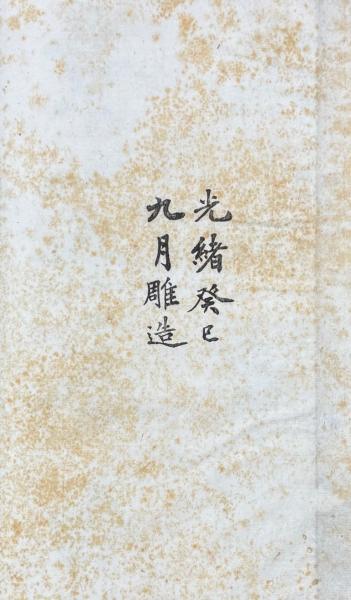 光緒癸巳
九月雕造